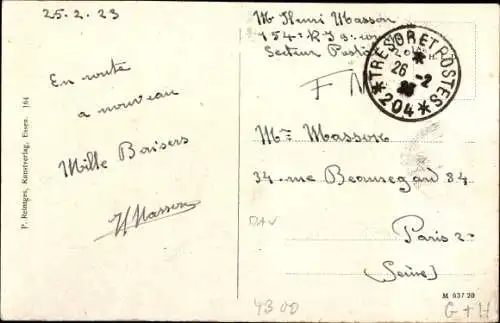 25.2.23
En route
a nouveau
Mille Baisers
HMasson
P. Reinges, Kunstverlag, Essen. 164
Mr Henri Masson
154e R I 3e
Secteur Postal
F M
* TRESOR ET POSTES * 204 *
26 -2
Me Masson
34 rue Beauregard 34
Paris 2e
(Seine)
DAV
4300
M 037 20
G+H